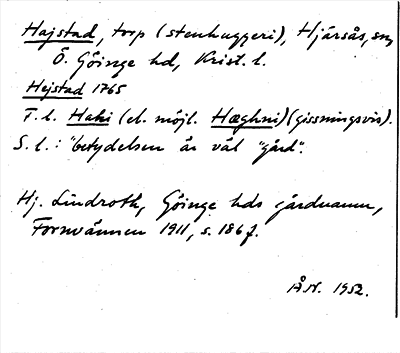 Hajstad, torp (stenhuggeri), Hjärsås, sn,
Ö. Göinge hd, Krist. l.
Hejstad 1765
F. l. Haki (el. möjl. Hæghni) (gissningsvis).
S. l.: "betydelsen är väl "gård".
Hj. Lindroth, Göinge hds gårdnamn,
Fornvännen 1911, s. 186 f.
Å.N. 1952.